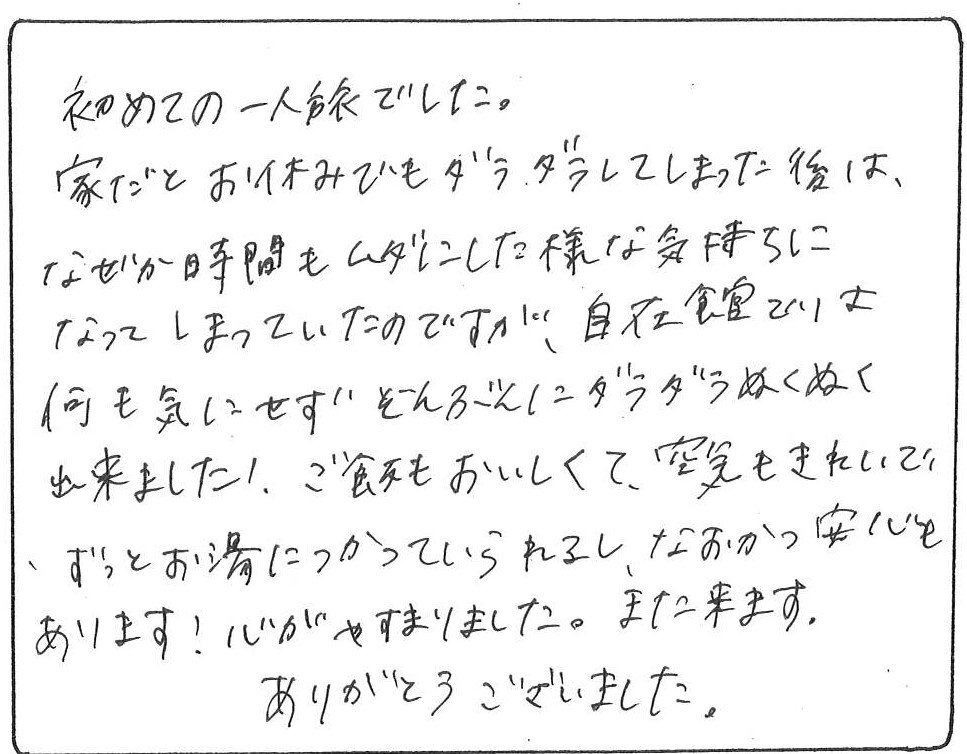 初めての一人旅でした。
家だとお休みでもダラダラしてしまった後は、
なぜか時間もムダにした様な気持ちに
なってしまっていたのですが、自在館では
何も気にせずぞんぶんにダラダラぬくぬく
出来ました!、ご飯もおいしくて、空気もきれいで
、ずっとお湯につかっていられるし、なおかつ安心も
あります!心がやすまりました。また来ます。
ありがとうございました。